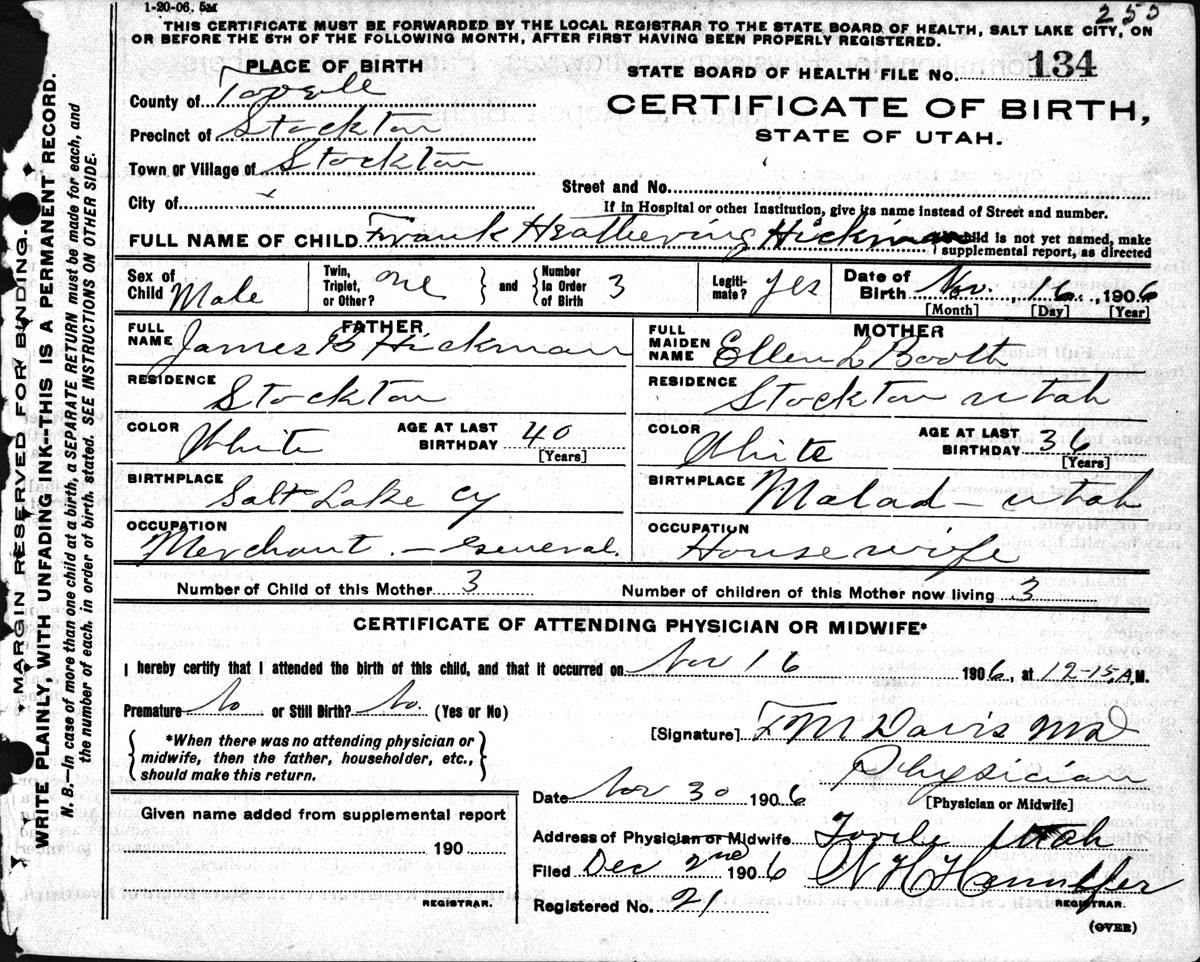 1-20-06. 5M
255
THIS CERTIFICATE MUST BE FORWARDED BY THE LOCAL REGISTRAR TO THE STATE BOARD OF HEALTH, SALT LAKE CITY, ON
OR BEFORE THE 5TH OF THE FOLLOWING MONTH, AFTER FIRST HAVING BEEN PROPERLY REGISTERED.
MARGIN RESERVED FOR BINDING.
WRITE PLAINLY, WITH UNFADING INK--THIS IS A PERMANENT RECORD.
N. B.—In case of more than one child at a birth, a SEPARATE RETURN must be made for each, and
the number of each, in order of birth, stated. SEE INSTRUCTIONS ON OTHER SIDE.
PLACE OF BIRTH
County of
Precinct of Stockton
Town or Village of Stockton
City of
STATE BOARD OF HEALTH FILE No. 134
CERTIFICATE OF BIRTH,
STATE OF UTAH.
Street and No.
If in Hospital or other Institution, give its name instead of Street and number.
FULL NAME OF CHILD Frank Heathering Hickman child is not yet named, make
supplemental report, as directed
Sex of Child Male
Twin, Triplet, or Other? one and Number In Order of Birth 3
Legitimate? yes
Date of Birth Nov. 16, 1906
[Month] [Day] [Year]
FATHER
FULL NAME James B Hickman
RESIDENCE Stockton
COLOR White AGE AT LAST BIRTHDAY 40
[Years]
BIRTHPLACE Salt Lake Cy
OCCUPATION Merchant — General.
MOTHER
FULL MAIDEN NAME Ellen L Booth
RESIDENCE Stockton Utah
COLOR White AGE AT LAST BIRTHDAY 36
[Years]
BIRTHPLACE Malad — Utah
OCCUPATION Housewife
Number of Child of this Mother 3
Number of children of this Mother now living 3
CERTIFICATE OF ATTENDING PHYSICIAN OR MIDWIFE*
I hereby certify that I attended the birth of this child, and that it occurred on Nov 16 1906, at 12-15, A.M.
Premature No or Still Birth? No. (Yes or No)
*When there was no attending physician or
midwife, then the father, householder, etc.,
should make this return.
[Signature] F M Davis MD
Physician
[Physician or Midwife]
Date Nov 30 1906
Address of Physician or Midwife Utah
Filed Dec 2nd 1906
REGISTRAR.
Registered No. 21
Given name added from supplemental report
190
REGISTRAR.
(OVER)